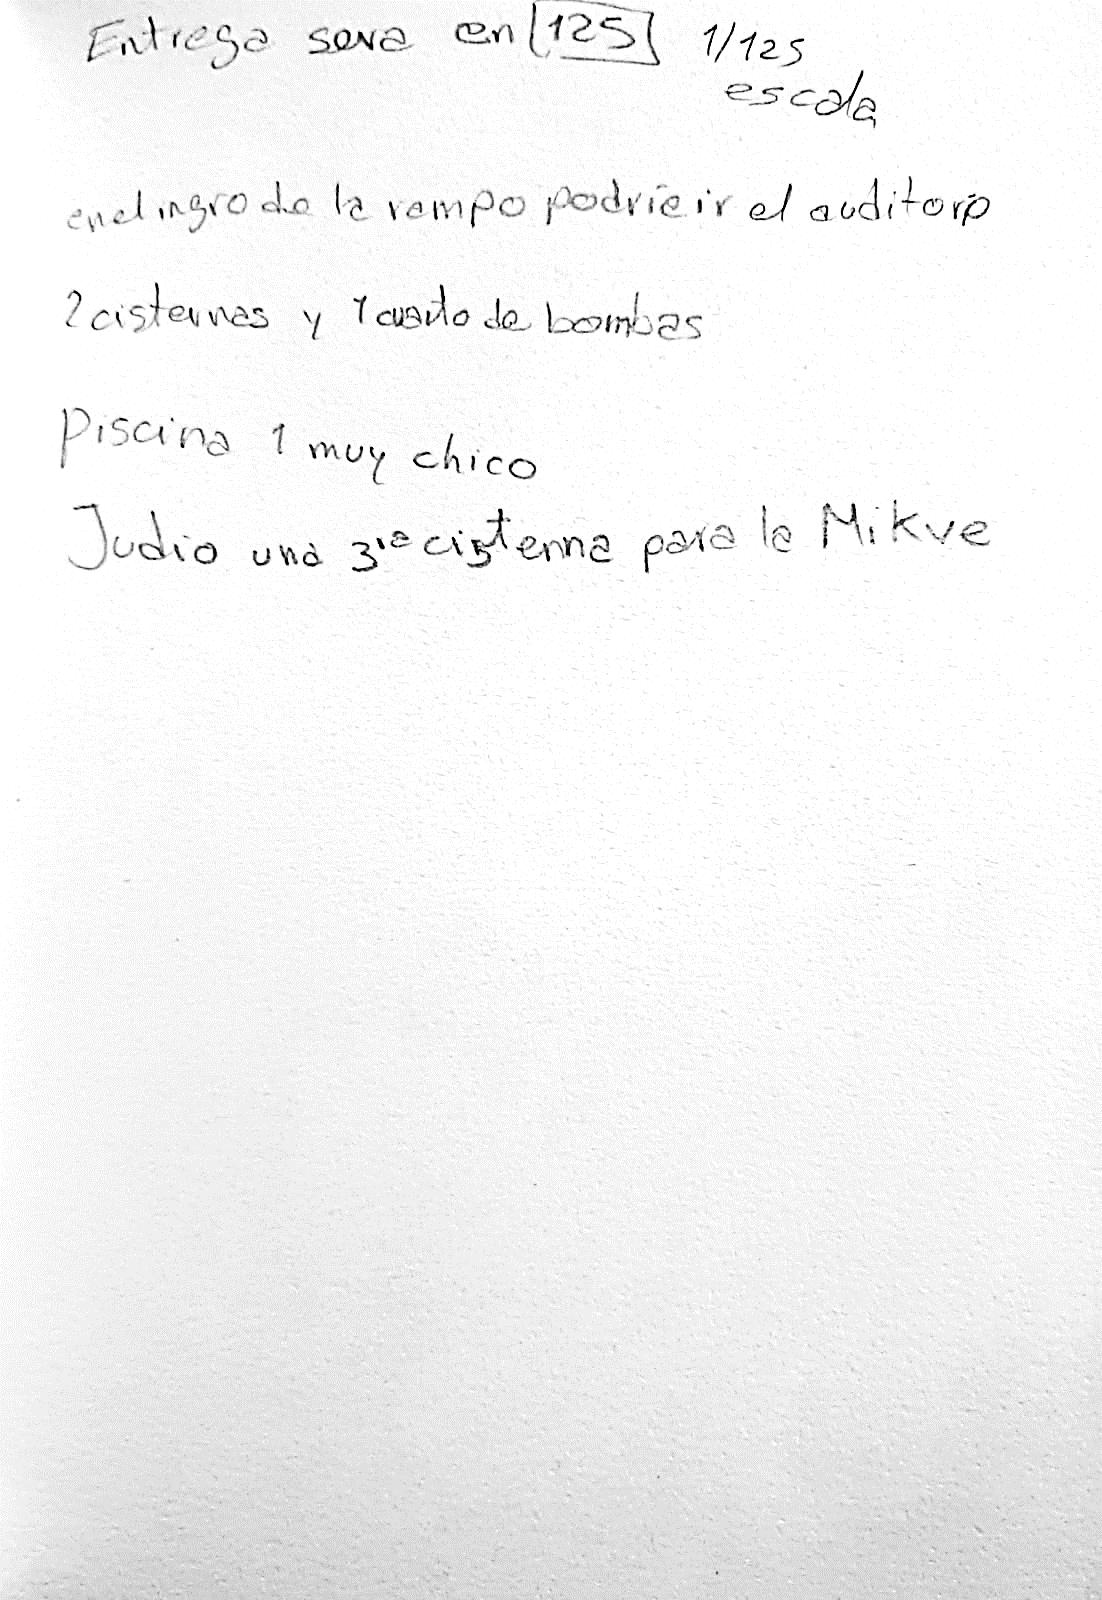 Entrega sera en 125 1/125
escala
en el ingro de la rampo podria ir el auditoro
2 cisternas y 1 cuarto de bombas
Piscina 1 muy chico
Judio una 3ra cisterna para la Mikve